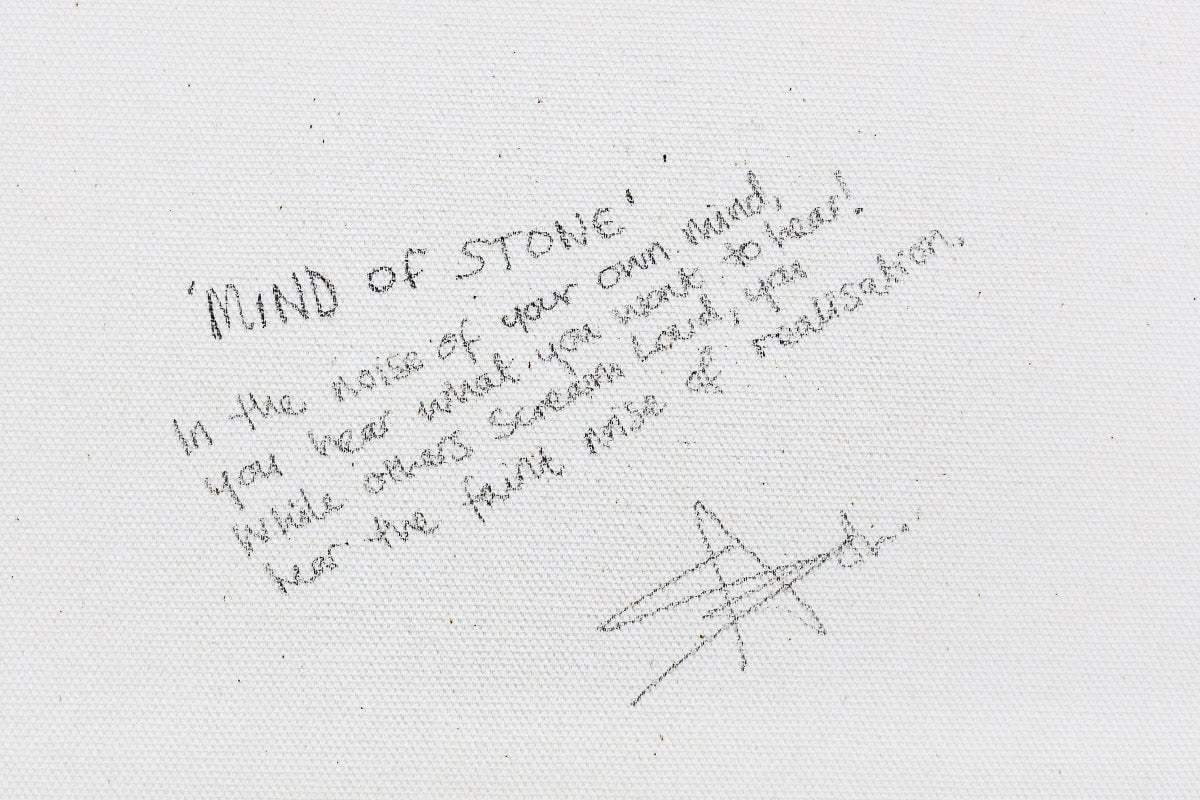 'MIND of STONE'
In the noise of your own mind,
you hear what you want to hear!
While others scream loud, you
hear the faint noise of realisation.